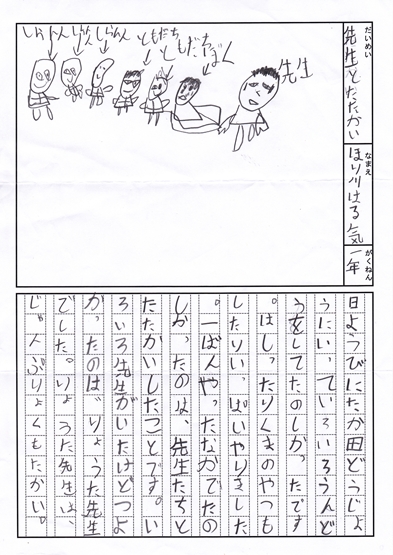 だいめい
先生とたたかい
なまえ
ほり川はる気
がくねん
一年
先生
ぼく
ともだち
ともだち
しらん
しらん
日ようびにたか田どうじょ
うにいっていろいろうんど
うをしてたのしかったです
。はしったりくまのやつも
したりいっぱいやりました
。一ばんやったなかでたの
しかったのは、先生たちと
たたかいしたことです。い
ろいろ先生がいたけどつよ
かったのは、りょうた先生
でした。りょうた先生は、
じゃんぷりょくもたかい。